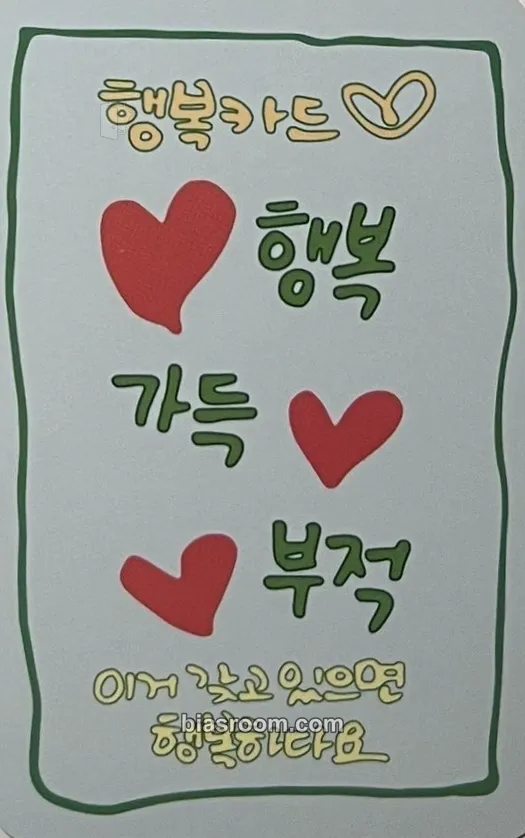 행복카드
행복
가득
부적
이거 갖고 있으면
biasroom.com
행복하다요